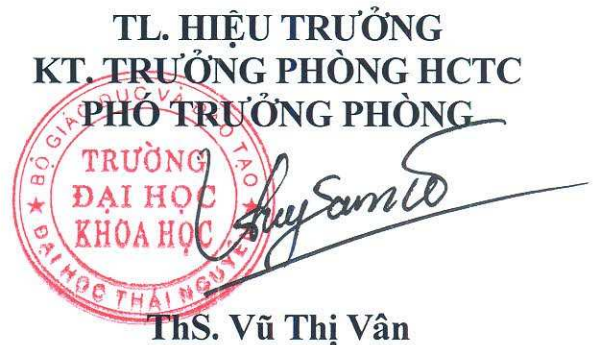 TL. HIỆU TRƯỞNG
KT. TRƯỞNG PHÒNG HCTC
PHÓ TRƯỞNG PHÒNG
BỘ GIÁO DỤC VÀ ĐÀO TẠO
TRƯỜNG
ĐẠI HỌC
KHOA HỌC
★ ĐẠI HỌC THÁI NGUYÊN ★
ThS. Vũ Thị Vân